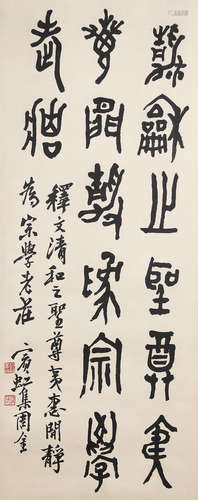 清龢之聖尊夷
惠閒靜為宗學
老莊
釋文清和之聖尊夷惠閒靜
為宗學老莊
賓虹集周金